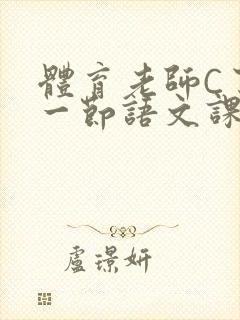 體育老師C
一節語文課
盧璟妍